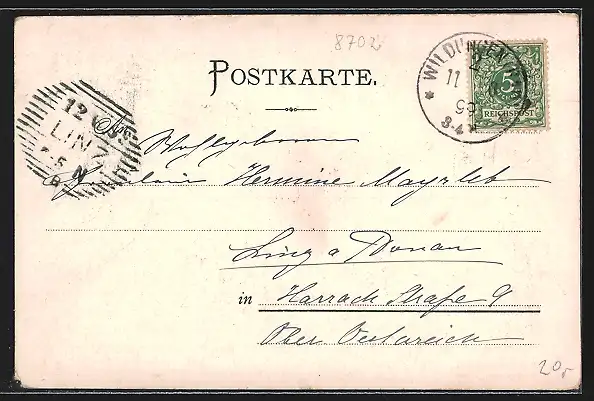 8702
POSTKARTE.
WILDUNGEN
11
99
3-4
5
REICHSPOST
12
LINZ
An Wohlgeboren
Fräulein Hermine Mayrleb
Linz a Donau
in Harrach Straße 9
Ober Oesterreich
20,-